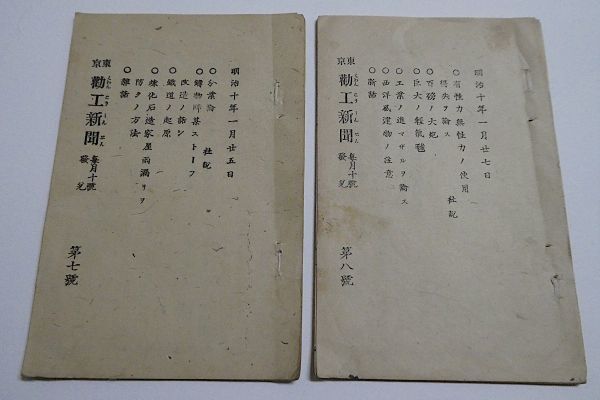 明治十年一月廿五日
○分業論 社説
○鑄物師甚ストーフ
改造ノ話シ
○鐵道ノ起原
○煉化石造家屋雨漏リヲ
防クノ方法
○雜話
東京 勸工新聞 毎月十號發兌
第七號
明治十年一月廿七日
○有性力無性力ノ使用
得失ヲ論ス 社説
○百磅ノ大炮
○巨大ノ輕氣毬
○工業ノ進マザルヲ論ス
○西洋風建物ノ注意
東京 勸工新聞 毎月十號發兌
第八號